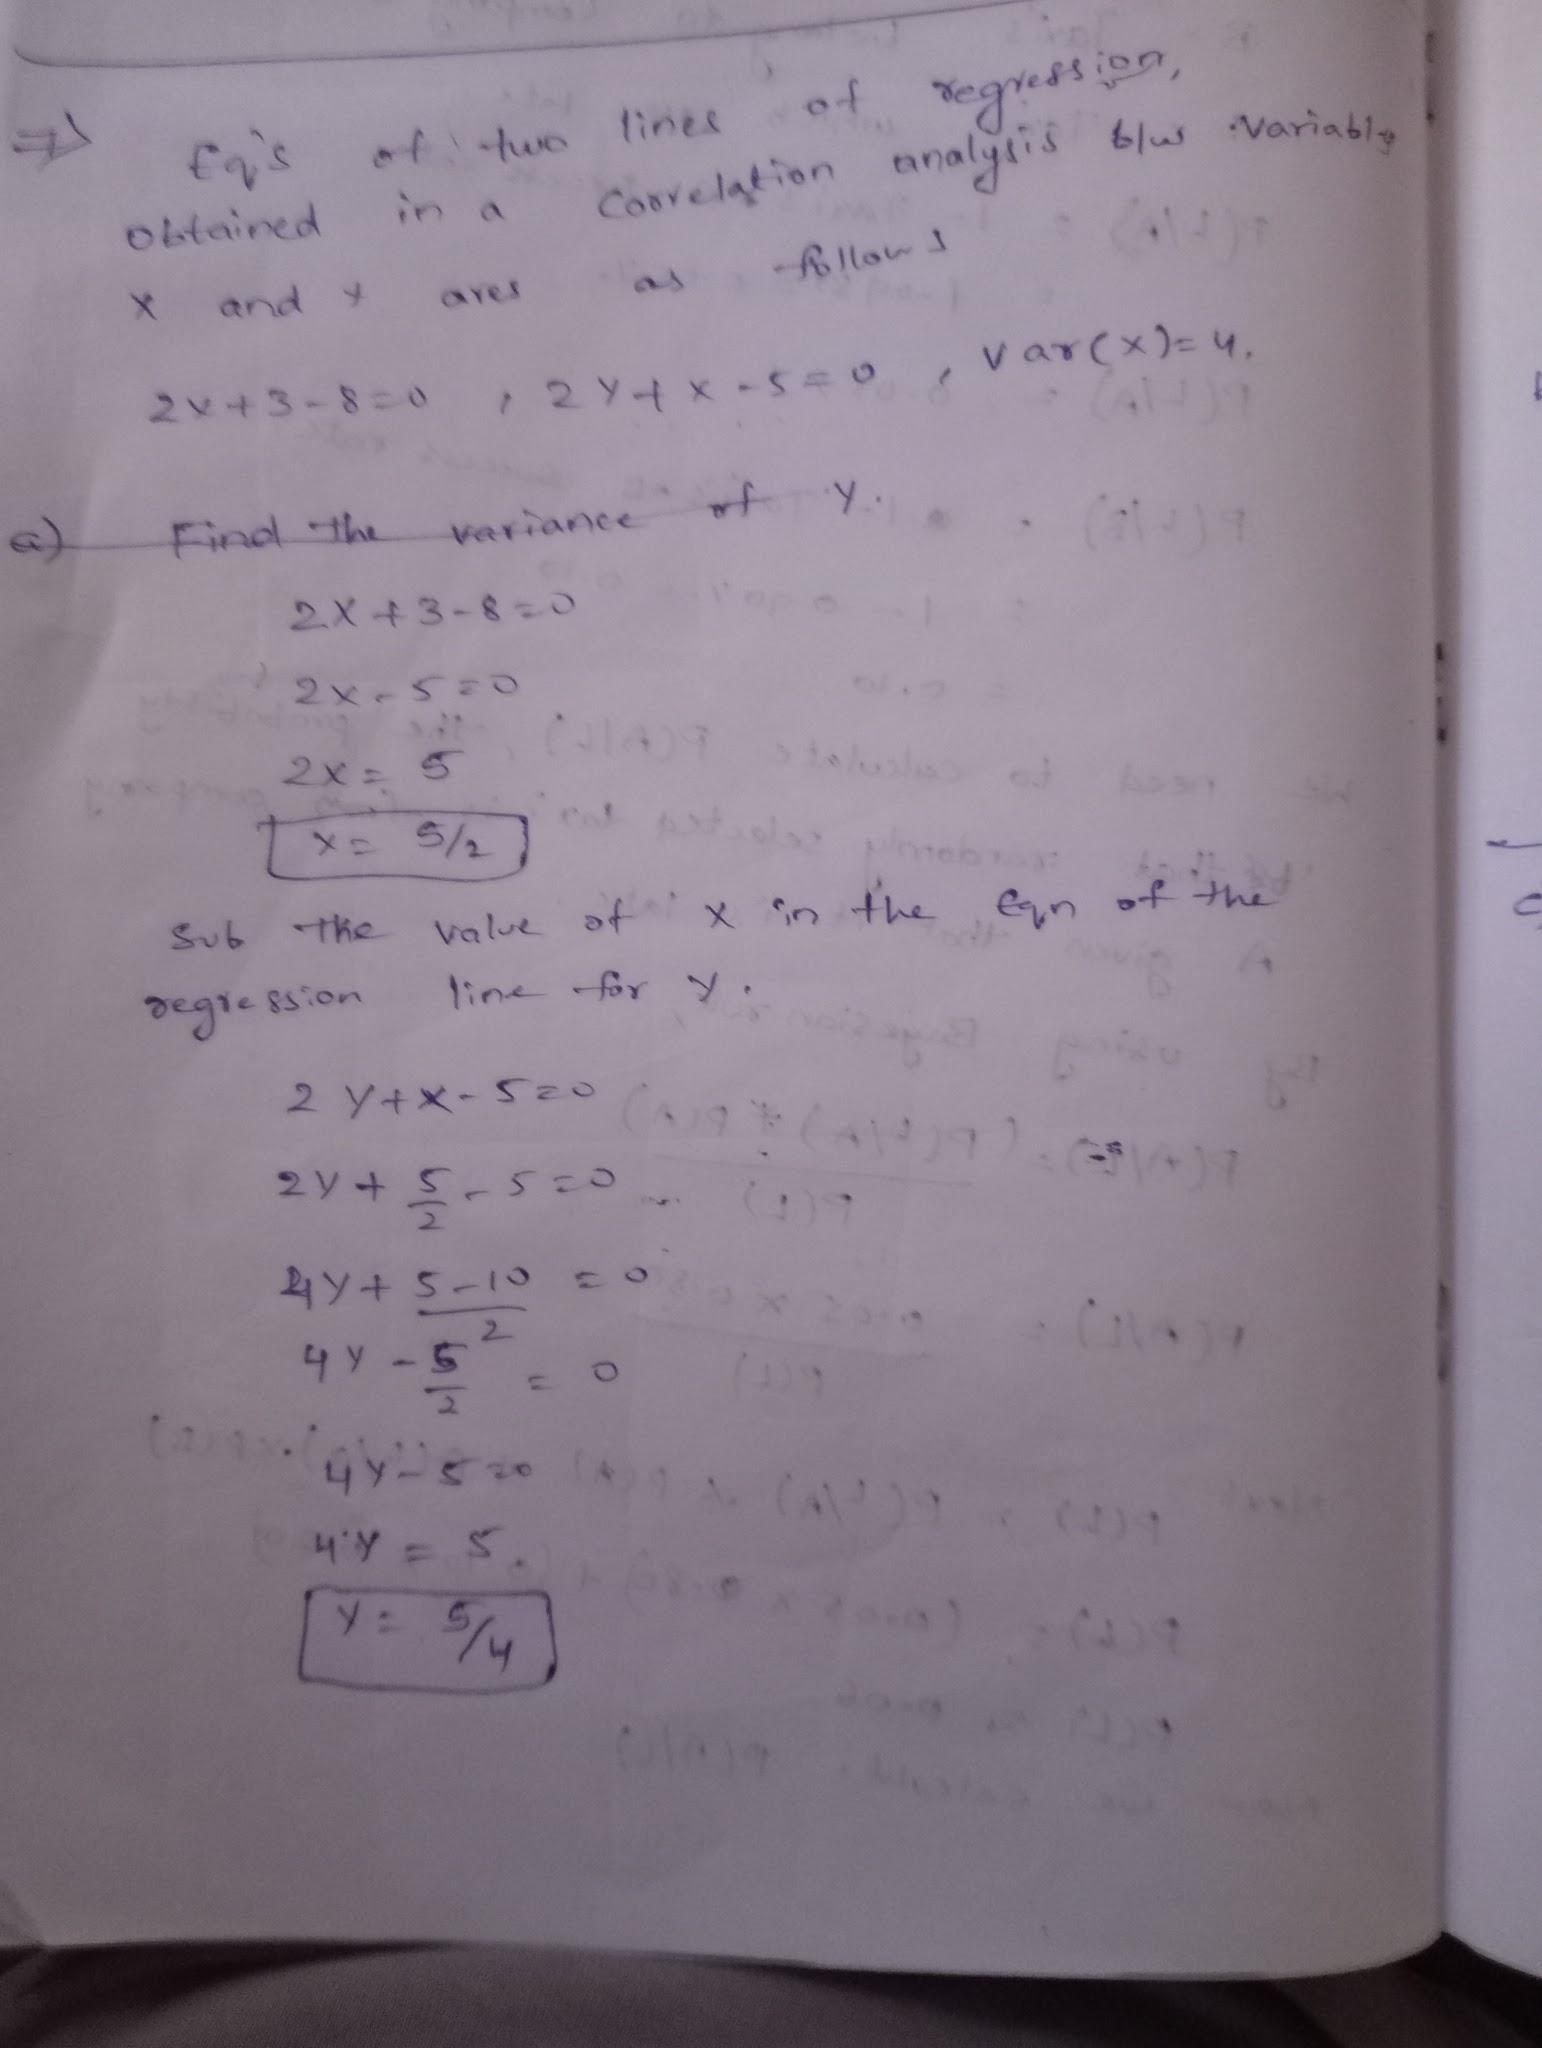 => Eq's of two lines of regression,
obtained in a Coorelation analysis b/w variable
x and y ares as follows
2x+3-8=0 , 2y+x-5=0 , var(x)=4.
a) Find the variance of y.
2x+3-8=0
2x-5=0
2x=5
x=5/2
Sub the value of x in the Eqn of the
regression line for y.
2y+x-5=0
2y+5/2-5=0
4y+(5-10)/2=0
4y-5/2=0
4y-5=0
4y=5.
y=5/4